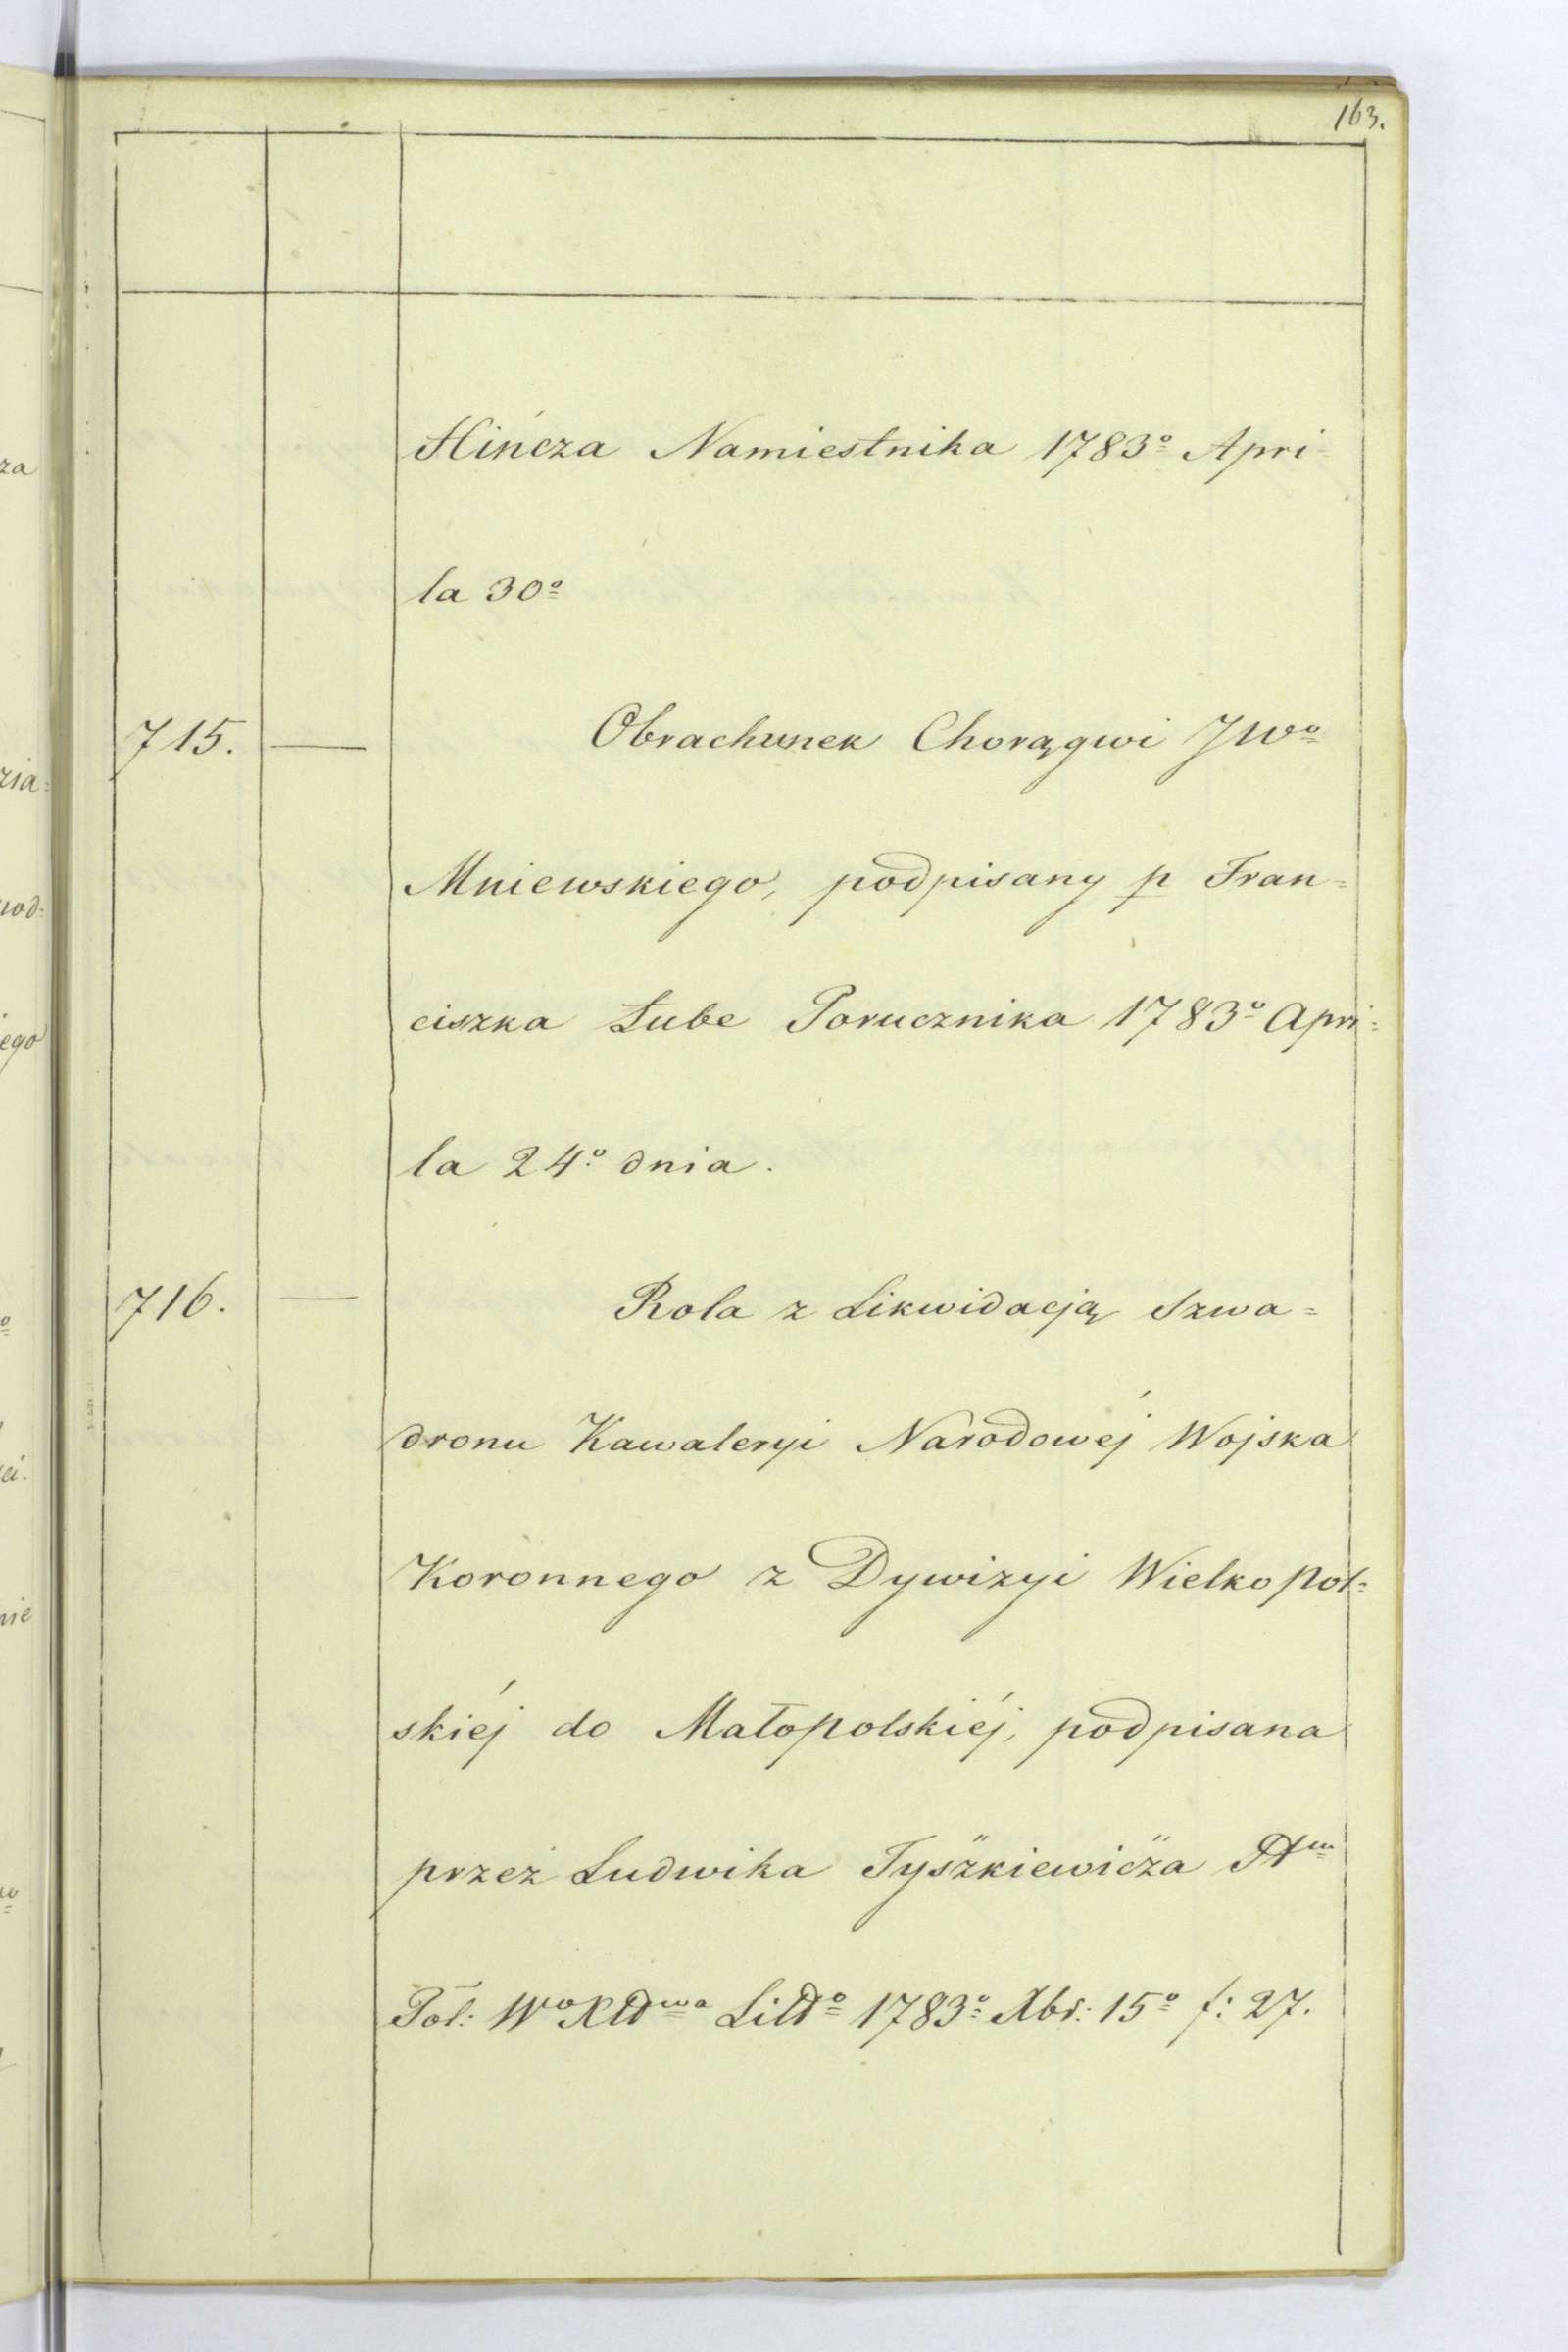 163.
Hińcza Namiestnika 1783º Apri=
la 30º
715. — Obrachunek Chorągwi JWº
Mniewskiego, podpisany p Fran=
ciszka Lube Porucznika 1783º Apri=
la 24º dnia.
716. — Rola z Likwidacją Szwa=
dronu Kawaleryi Narodowéj Wojska
Koronnego z Dywizyi Wielkopol=
skiéj do Małopolskiéj, podpisana
przez Ludwika Tyszkiewicza
Pol: 1783º Xbr: 15º f: 27.